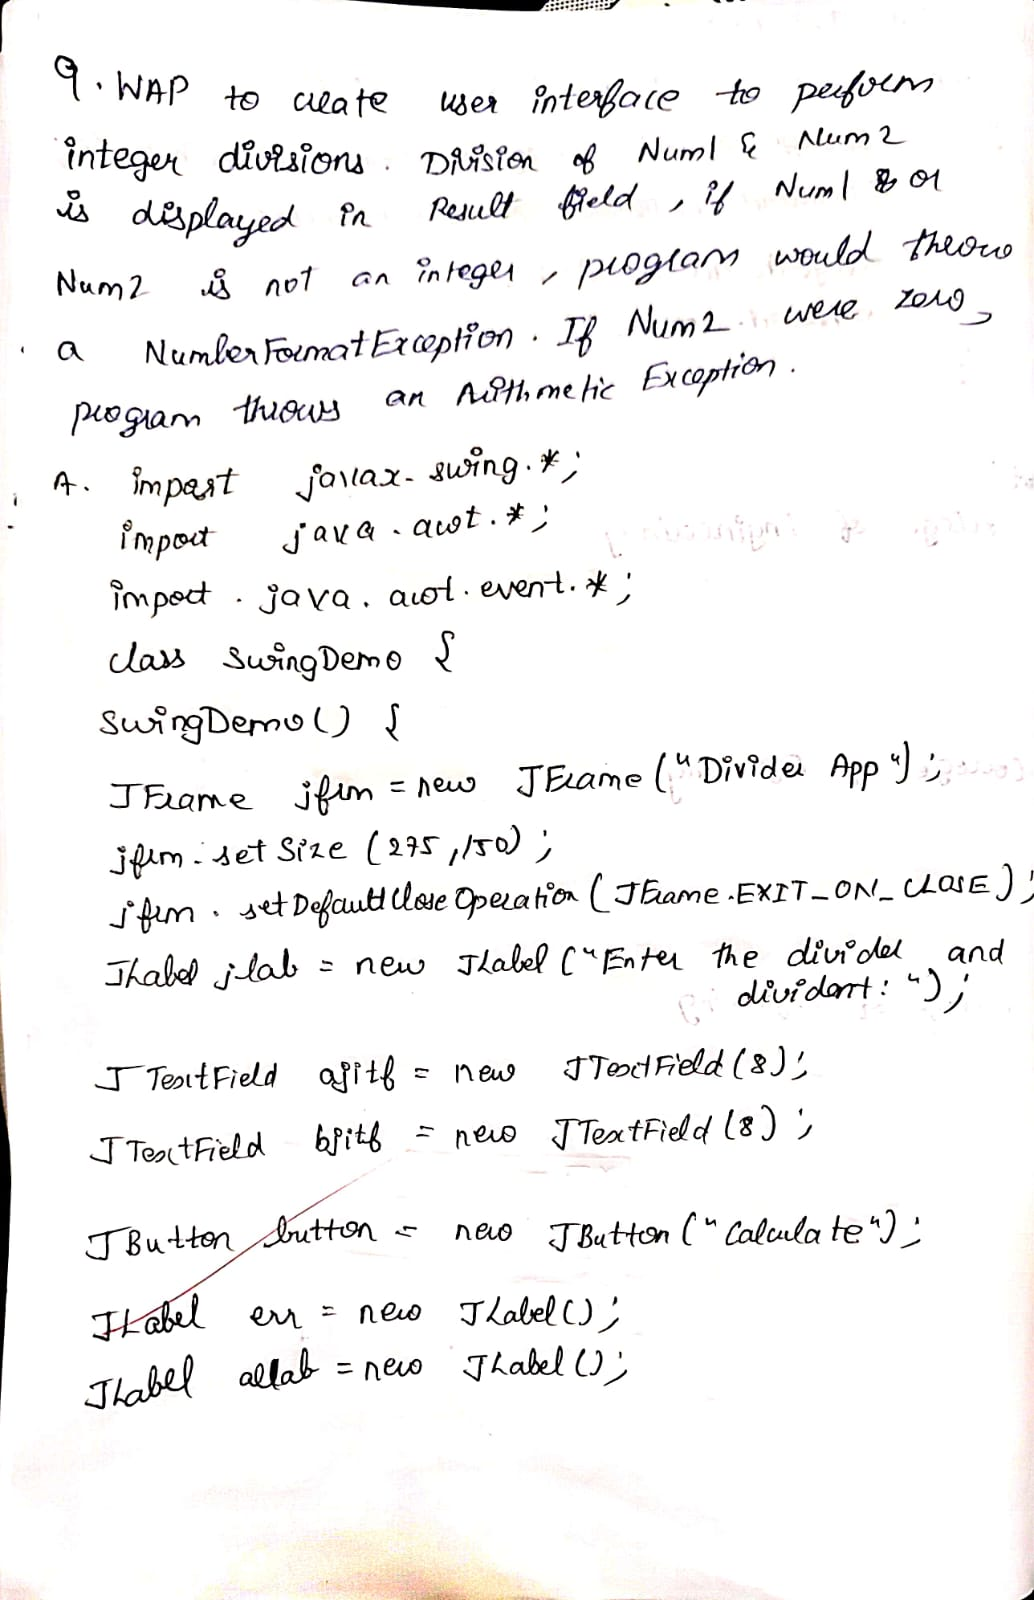 9. WAP to create user interface to perform
integer divisions. Division of Num1 & Num2
is displayed in Result field, if Num1 or
Num2 is not an integer, program would throw
a NumberFormatException. If Num2 were zero,
program throws an Arithmetic Exception.
A. import javax.swing.*;
import java.awt.*;
import java.awt.event.*;
class SwingDemo {
SwingDemo() {
JFrame jfrm = new JFrame("Divider App");
jfrm.setSize(275,150);
jfrm.setDefaultCloseOperation(JFrame.EXIT_ON_CLOSE);
JLabel jlab = new JLabel("Enter the divider and
dividant:");
JTextField ajtf = new JTextField(8);
JTextField bjtf = new JTextField(8);
JButton button = new JButton("Calculate");
JLabel err = new JLabel();
JLabel allab = new JLabel();